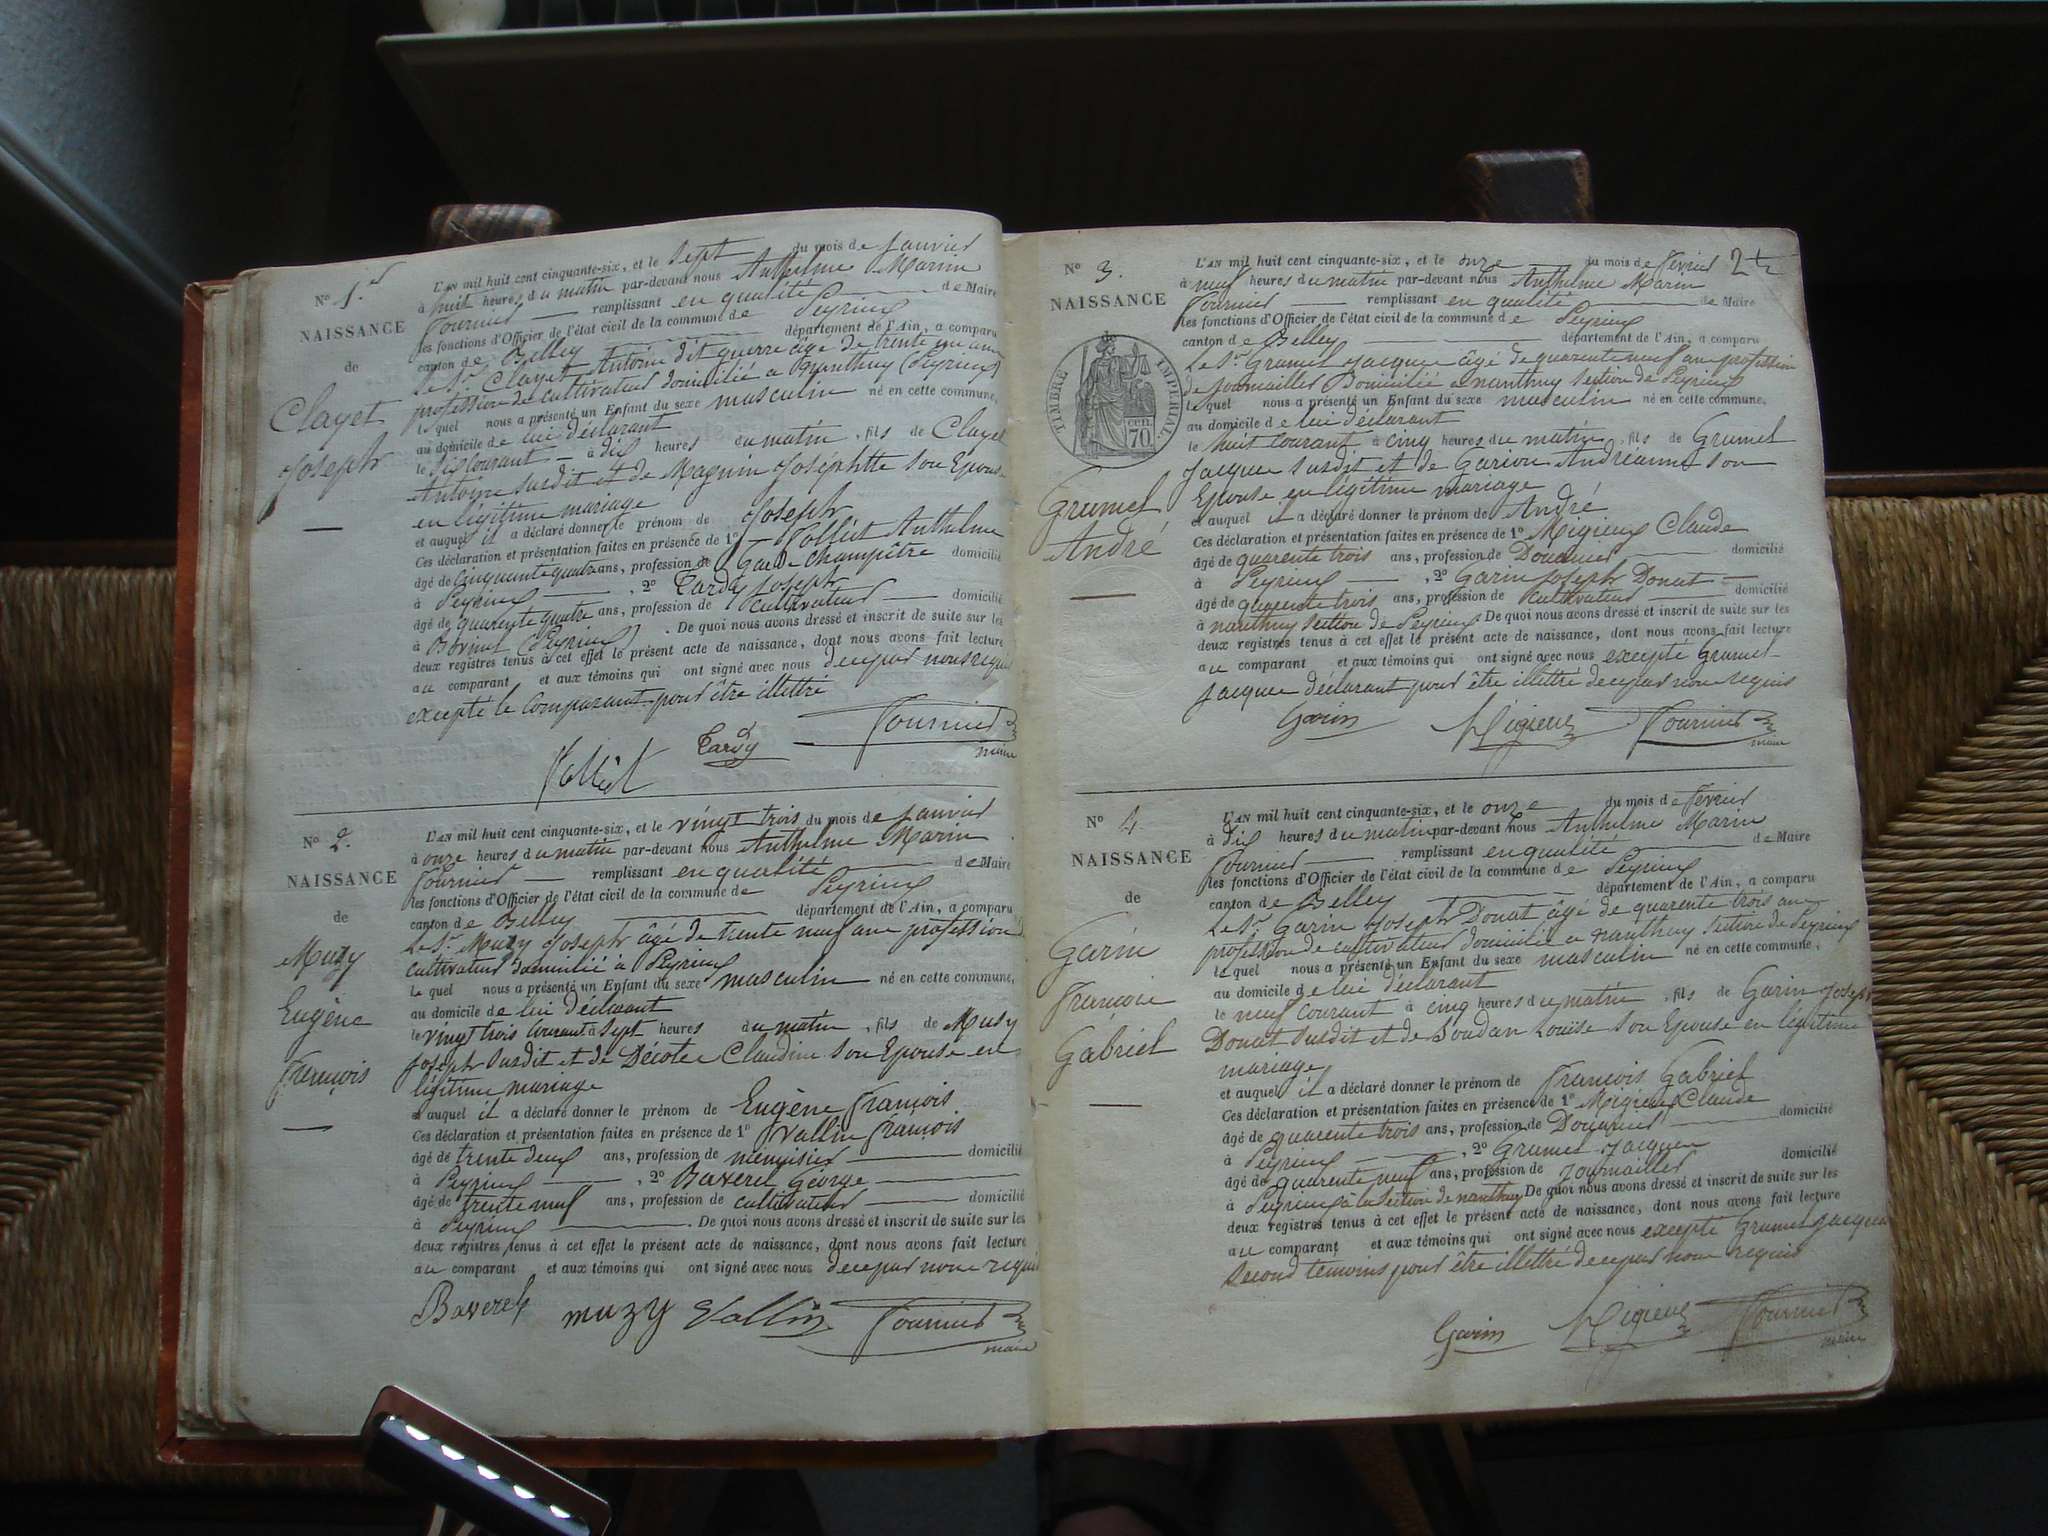 N° 1.er
NAISSANCE
de
Clayet
Joseph
L'AN mil huit cent cinquante-six, et le sept du mois de Janvier
à huit heures du matin par-devant nous Anthelme Marin
Fournier remplissant en qualité de Maire
les fonctions d'Officier de l'état civil de la commune de Peyrieux
canton de Belley département de l'Ain, a comparu
le Sr. Clayet Antoine dit guerre âgé de trente un ans
profession de cultivateur domicilié a Nanthuy (Peyrieux)
le quel nous a présenté un Enfant du sexe masculin né en cette commune,
au domicile de lui déclarant
le six courant à dix heures du matin, fils de Clayet
Antoine susdit et de Magnin Joséphtte son Epouse
en légitime mariage
et auquel il a déclaré donner le prénom de Joseph
Ces déclaration et présentation faites en présence de 1° Anthelme
âgé de cinquante quatre ans, profession de Garde champêtre domicilié
à Peyrieux, 2° Tardy Joseph
âgé de quarente quatre ans, profession de cultivateur domicilié
à (Peyrieux). De quoi nous avons dressé et inscrit de suite sur les
deux registres tenus à cet effet le présent acte de naissance, dont nous avons fait lecture
au comparant et aux témoins qui ont signé avec nous de ce par nous requis
excepté le comparant pour être illettré
Tardy Fournier
maire
N° 2.e
NAISSANCE
de
Muzy
Eugène
François
L'AN mil huit cent cinquante-six, et le vingt trois du mois de Janvier
à onze heures du matin par-devant nous Anthelme Marin
Fournier remplissant en qualité de Maire
les fonctions d'Officier de l'état civil de la commune de Peyrieux
canton de Belley département de l'Ain, a comparu
le Sr. Muzy Joseph âgé de trente neuf ans profession
cultivateur domicilié à Peyrieux
le quel nous a présenté un Enfant du sexe masculin né en cette commune,
au domicile de lui déclarant
le vingt trois courant à sept heures du matin, fils de Muzy
Joseph susdit et de Décote Claudine son Epouse en
légitime mariage
et auquel il a déclaré donner le prénom de Eugène François
Ces déclaration et présentation faites en présence de 1° Vallin François
âgé de trente deux ans, profession de menuisier domicilié
à Peyrieux, 2° Baverel George
âgé de trente neuf ans, profession de cultivateur domicilié
à Peyrieux. De quoi nous avons dressé et inscrit de suite sur les
deux registres tenus à cet effet le présent acte de naissance, dont nous avons fait lecture
au comparant et aux témoins qui ont signé avec nous de ce par nous requis
Baverel muzy Vallin Fournier
maire
N° 3.
NAISSANCE
de
TIMBRE IMPERIAL.
cen.
70.
Grumel
André
2
L'AN mil huit cent cinquante-six, et le onze du mois de février
à neuf heures du matin par-devant nous Anthelme Marin
Fournier remplissant en qualité de Maire
les fonctions d'Officier de l'état civil de la commune de Peyrieux
canton de Belley département de l'Ain, a comparu
le Sr. Grumel Jacque âgé de quarente neuf ans profession
de journailler Domicilié a nanthuy section de Peyrieux
le quel nous a présenté un Enfant du sexe masculin né en cette commune,
au domicile de lui déclarant
le huit courant à cinq heures du matin, fils de Grumel
Jacque susdit et de Andréanne son
Epouse en légitime mariage
et auquel il a déclaré donner le prénom de André
Ces déclaration et présentation faites en présence de 1° Migieux Claude
âgé de quarente trois ans, profession de Douanier domicilié
à Peyrieux, 2° Garin Joseph Donat
âgé de quarente trois ans, profession de cultivateur domicilié
à nanthuy section de Peyrieux. De quoi nous avons dressé et inscrit de suite sur les
deux registres tenus à cet effet le présent acte de naissance, dont nous avons fait lecture
au comparant et aux témoins qui ont signé avec nous excepté Grumel
Jacque déclarant pour être illettré de ce par nous requis
Garin Migieux Fournier
maire
N° 4.
NAISSANCE
de
Garin
François
Gabriel
L'AN mil huit cent cinquante-six, et le onze du mois de février
à dix heures du matin par-devant nous Anthelme Marin
Fournier remplissant en qualité de Maire
les fonctions d'Officier de l'état civil de la commune de Peyrieux
canton de Belley département de l'Ain, a comparu
le Sr. Garin Joseph Donat âgé de quarente trois ans
profession de cultivateur domicilié a nanthuy section de Peyrieux
le quel nous a présenté un Enfant du sexe masculin né en cette commune,
au domicile de lui déclarant
le neuf courant à cinq heures du matin, fils de Garin Joseph
Donat susdit et de Soudan Louise son Epouse en légitime
mariage
et auquel il a déclaré donner le prénom de François Gabriel
Ces déclaration et présentation faites en présence de 1° Migieux Claude
âgé de quarente trois ans, profession de Douanier domicilié
à Peyrieux, 2° Grumel Jacque
âgé de quarente neuf ans, profession de journailler domicilié
à Peyrieux à la section de nanthuy De quoi nous avons dressé et inscrit de suite sur les
deux registres tenus à cet effet le présent acte de naissance, dont nous avons fait lecture
au comparant et aux témoins qui ont signé avec nous excepté Grumel Jacque
second témoins pour être illettré de ce par nous requis
Garin Migieux Fournier
maire